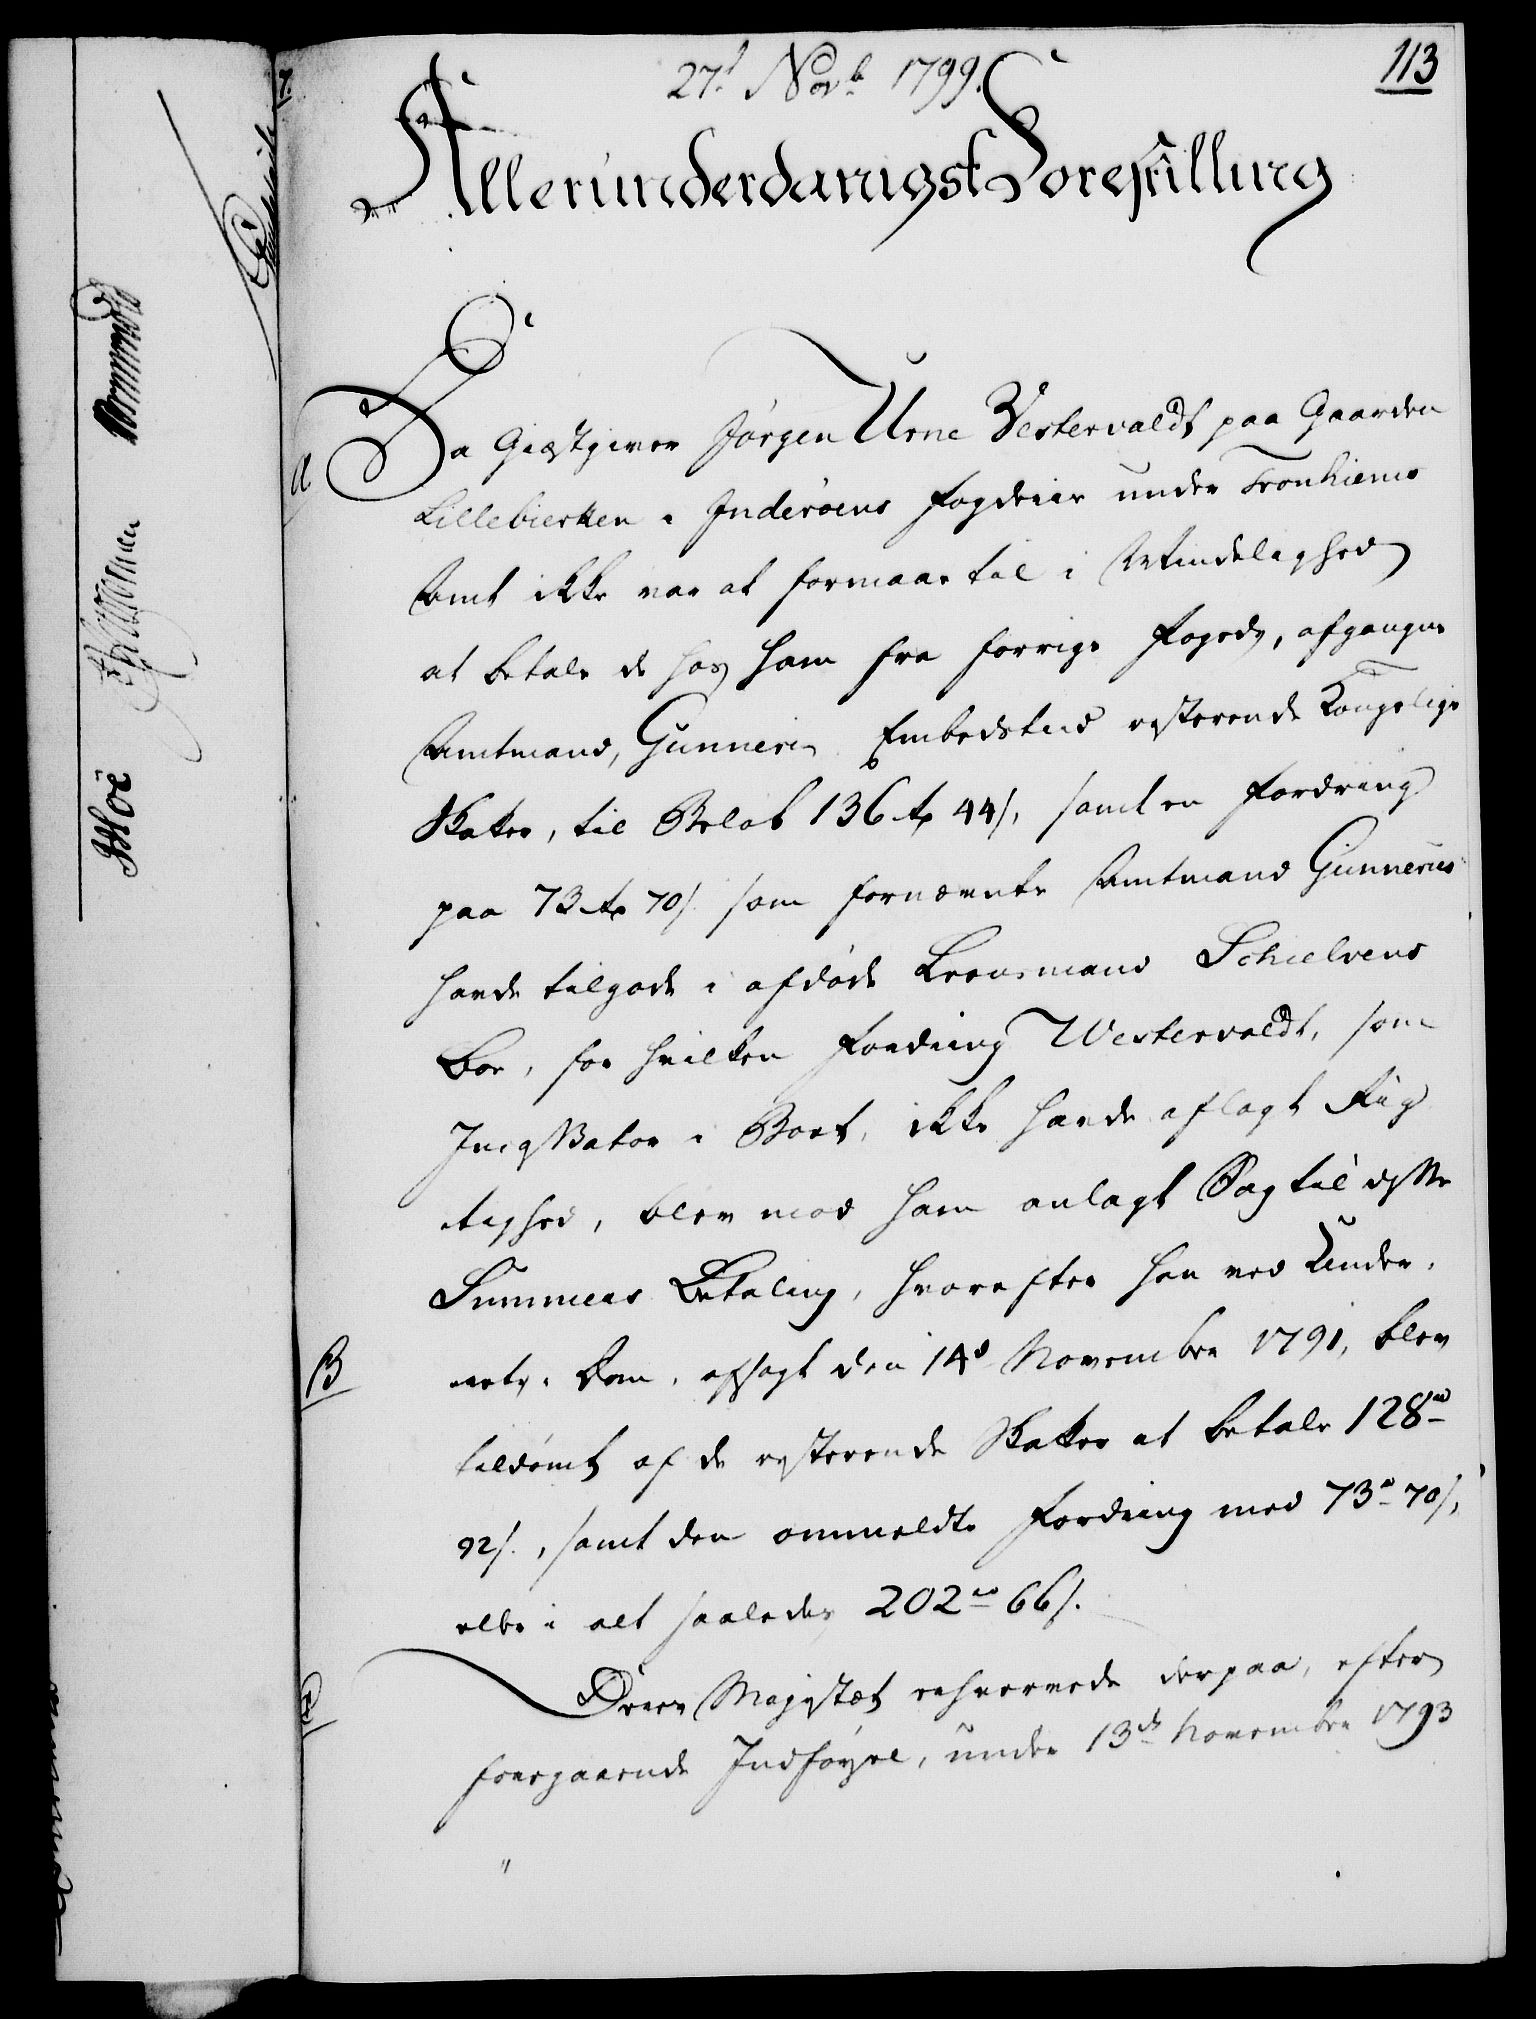 27d. Novb. 1799.
113
Allerunderdanigst Forestilling
A
Da Giæstgiver Jørgen Urne Vestervaldt paa Gaarden
Lillebierken i Inderøens Fogderie under Tronhiems
Amt ikke var at formaae til i Mindelighed
at betale de hos ham fra forrige Foged, afgangne
Amtmand, Gunneri Embedstid resterende Kongelige
Skatter, til Beløb 136 rd 44 s, samt en Fordring
paa 73 rd 70 s som fornævnte Amtmand Gunnerus
havde tilgode i afdøde Lensmand Schielvens
Boe, for hvilken Fordring Westervaldt, som
Inqvisitor i Boet, ikke havde aflagt Rig
tighed, blev mod ham anlagt Sag til disse
Summers Betaling, hvorefter han ved Under-
B
rets Dom, afsagt den 14d November 1791, blev
tildømt af de resterende Skatter at betale 128 rd
92 s., samt den ommeldte Fordring med 73 rd 70 s,
eller i alt saaledes 202 rd 66 s.
Deres Majestæt erhvervede derpaa, efter
foregaaende Indhøyre, under 13de November 1793
Møe